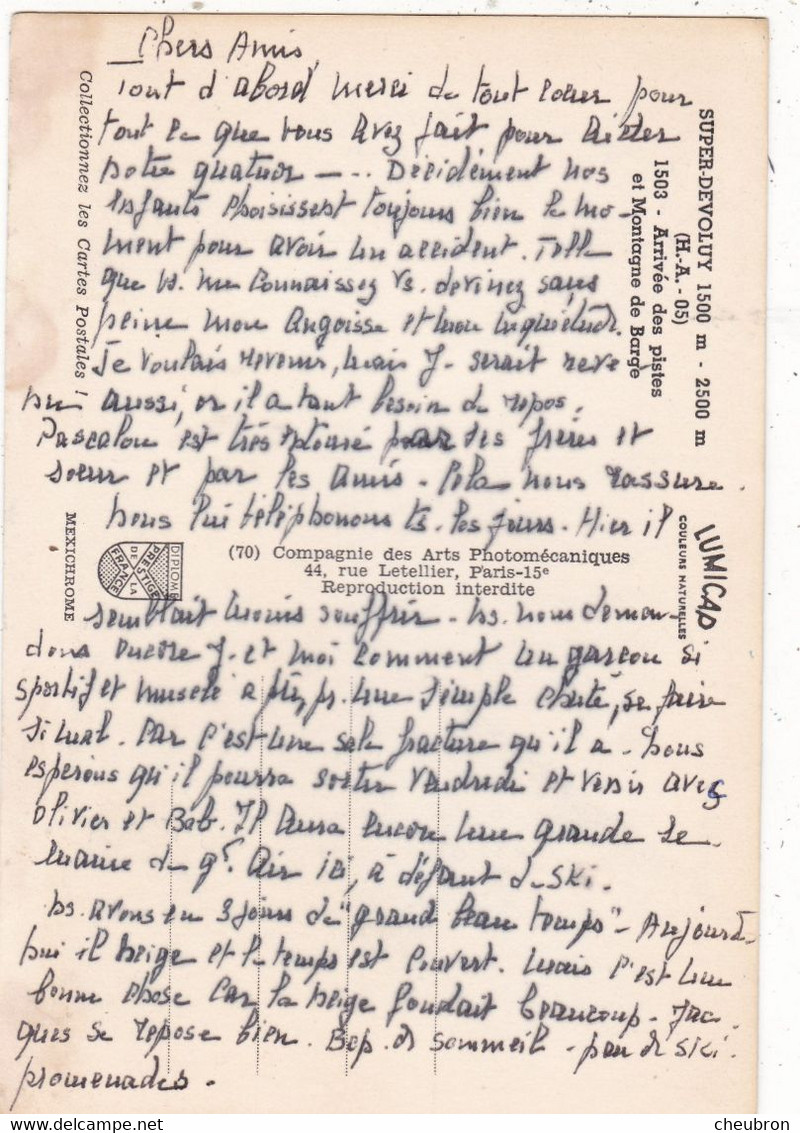 Chers Amis,
Tout d'abord merci de tout coeur pour
tout ce que vous avez fait pour aider
notre quatuor - .. Décidément nos
enfants choisissent toujours bien le mo-
ment pour avoir un accident. Telle
que vs. me connaissez vs. devinez sans
peine mon angoisse et mon inquiétude.
Je voulais revenir, mais J. serait reve
nu aussi, or il a tant besoin de repos.
Pascalou est très entouré par ses frères et
soeur et par les amis. Cela nous rassure.
Nous lui téléphonons ts. les jours. Hier il
semblait moins souffrir. Ns. nous deman-
dons encore J. et moi comment un garçon si
sportif et musclé a pu, pr. une simple chute, se faire
si mal. Car c'est une sale fracture qu'il a. Nous
espérons qu'il pourra sortir vendredi et venir avec
Olivier et Bab. Il aura encore une grande se-
maine de gd. Air ici, à défaut de ski.
Ns. avons eu 3 jours de "grand beau temps" - Aujourd-
hui il neige et le temps est couvert. Mais c'est une
bonne chose car la neige fondait beaucoup. Jac-
ques se repose bien. Bcp. de sommeil - peu de ski.
promenades.
SUPER-DEVOLUY 1500 m - 2500 m
(H.-A. - 05)
1503 - Arrivée des pistes
et Montagne de Barge
Collectionnez les Cartes Postales !
LUMICAP
COULEURS NATURELLES
MEXICHROME
DIPLOME
PRESTIGE
DE LA
FRANCE
(70) Compagnie des Arts Photomécaniques
44, rue Letellier, Paris-15e
Reproduction interdite
cheubron
delcampe.net